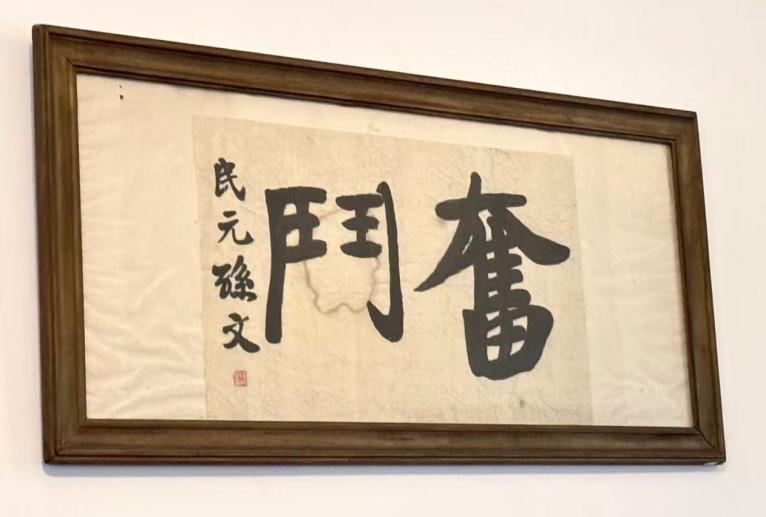 奮鬥
民元孫文